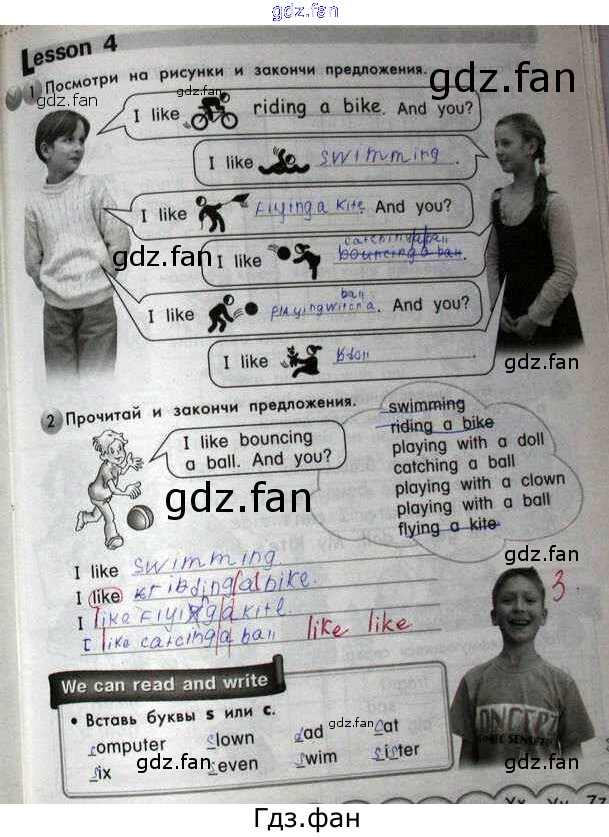 gdz.fan
Lesson 4
1 Посмотри на рисунки и закончи предложения.
gdz.fan
gdz.fan
gdz.fan
I like riding a bike. And you?
I like swimming.
I like Flying a Kite. And you?
gdz.fan
gdz.fan
catching a ball
I like bouncing a ball.
ball
I like playing with a. And you?
gdz.fan
I like
2 Прочитай и закончи предложения.
I like bouncing
a ball. And you?
swimming
riding a bike
playing with a doll
catching a ball
playing with a clown
playing with a ball
flying a kite
gdz.fan
gdz.fan
I like swimming
I like ribding a bike.
I like Flying a kite.
I like catcing a ball like like
3.
We can read and write
• Вставь буквы s или c.
gdz.fan
computer slown dad cat
six seven swim sister
gdz.fan
gdz.fan
gdz.fan
CONCEPT
Xx Yy Zz
Гдз.фан